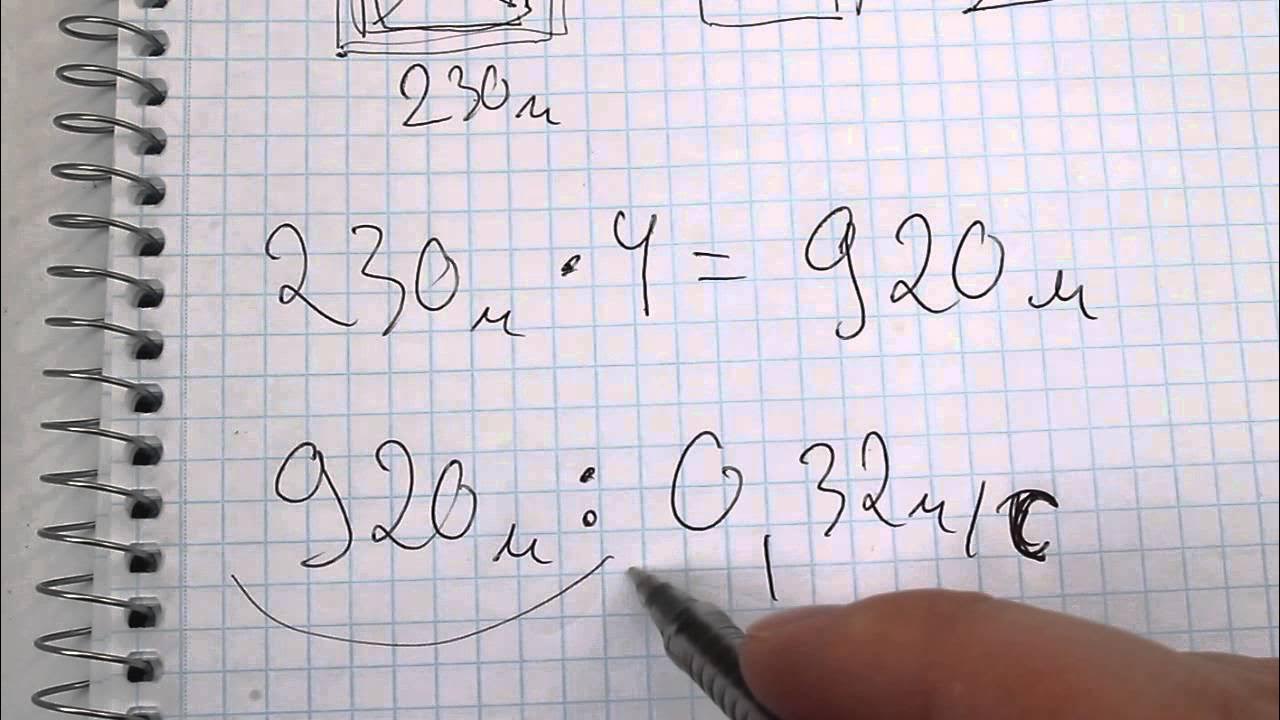 230м
230м · 4 = 920м
920м : 0,32м/с